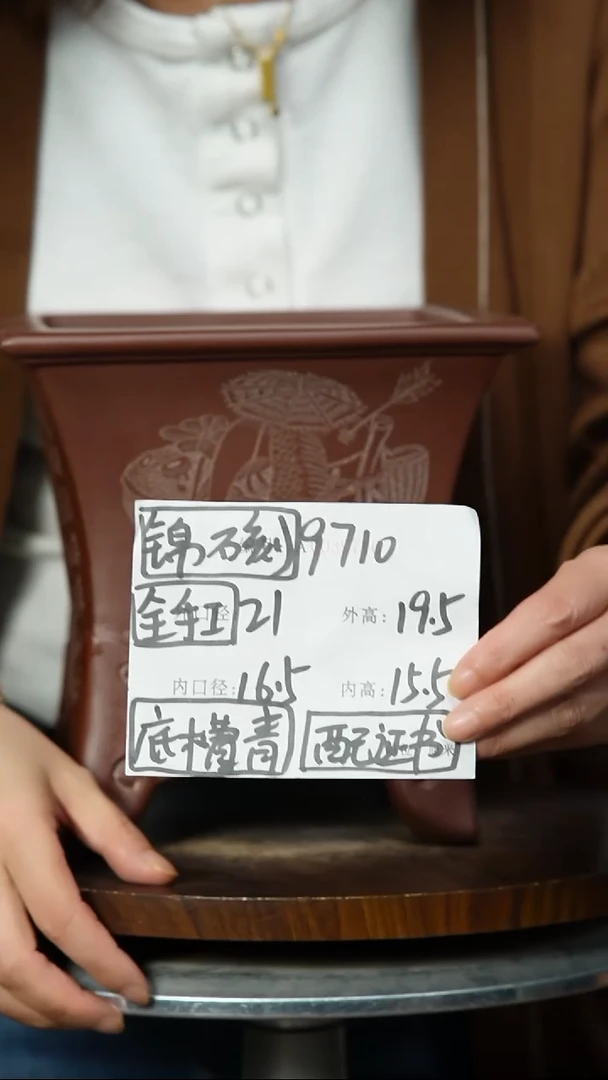 锦石彩 9710
全手工 21 外高: 19.5
内口径: 16.5 内高: 15.5
底槽青 配证书